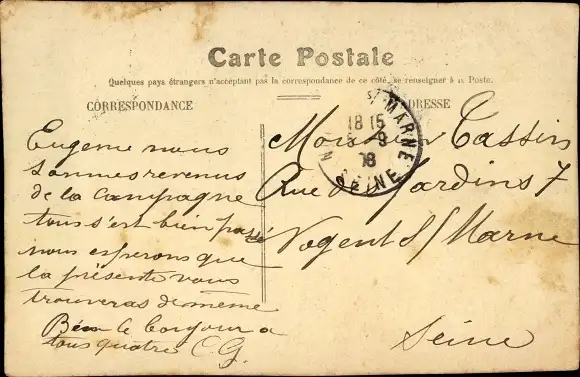 Carte Postale
Quelques pays étrangers n'acceptant pas la correspondance de ce côté, se renseigner à la Poste.
CORRESPONDANCE
Eugene nous
sommes revenus
de la campagne
tous s'est bien passé
nous esperons que
la présente vous
trouveras de même
Bien le bonjour a
tous quatre C.G.
ADRESSE
Tassin
Rue des Jardins 7
Nogent S/ Marne
Seine
S/ MARNE
18 15
5 - 9
08
SEINE